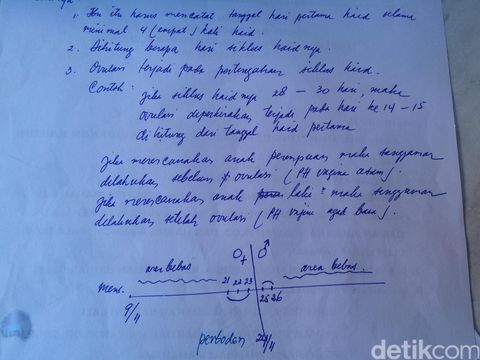 1. Ibu itu harus mencatat tanggal hari pertama haid selama
minimal 4 (empat) kali haid.
2. Dihitung berapa hari siklus haidnya.
3. Ovulasi terjadi pada pertengahan siklus haid.
Contoh: jika siklus haidnya 28 - 30 hari, maka
ovulasi diperkirakan terjadi pada hari ke 14 - 15
dihitung dari tanggal haid pertama
Jika merencanakan anak perempuan maka senggama
dilakukan sebelum ovulasi (PH vagina asam).
Jika merencanakan anak laki² maka senggama
dilakukan setelah ovulasi (PH vagina agak basa).
♀ ♂
area bebas
area bebas.
21 22 23
Mens.
25 26
9/11
perboden
24/11
detikcom